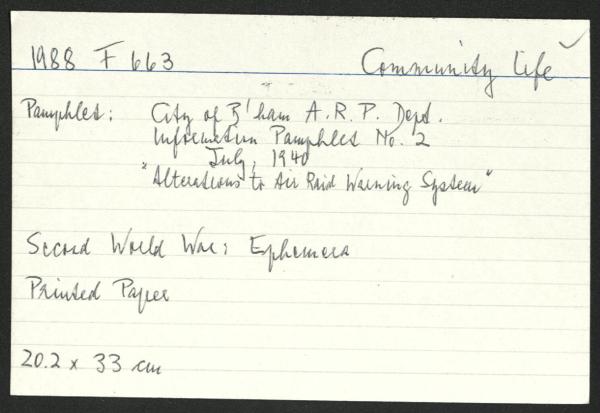 1988 F 663 Community Life ✓
Pamphlet: City of B'ham A.R.P. Dept.
Information Pamphlet No. 2
July, 1940
"Alterations to Air Raid Warning System"
Second World War: Ephemera
Printed Paper
20.2 x 33 cm